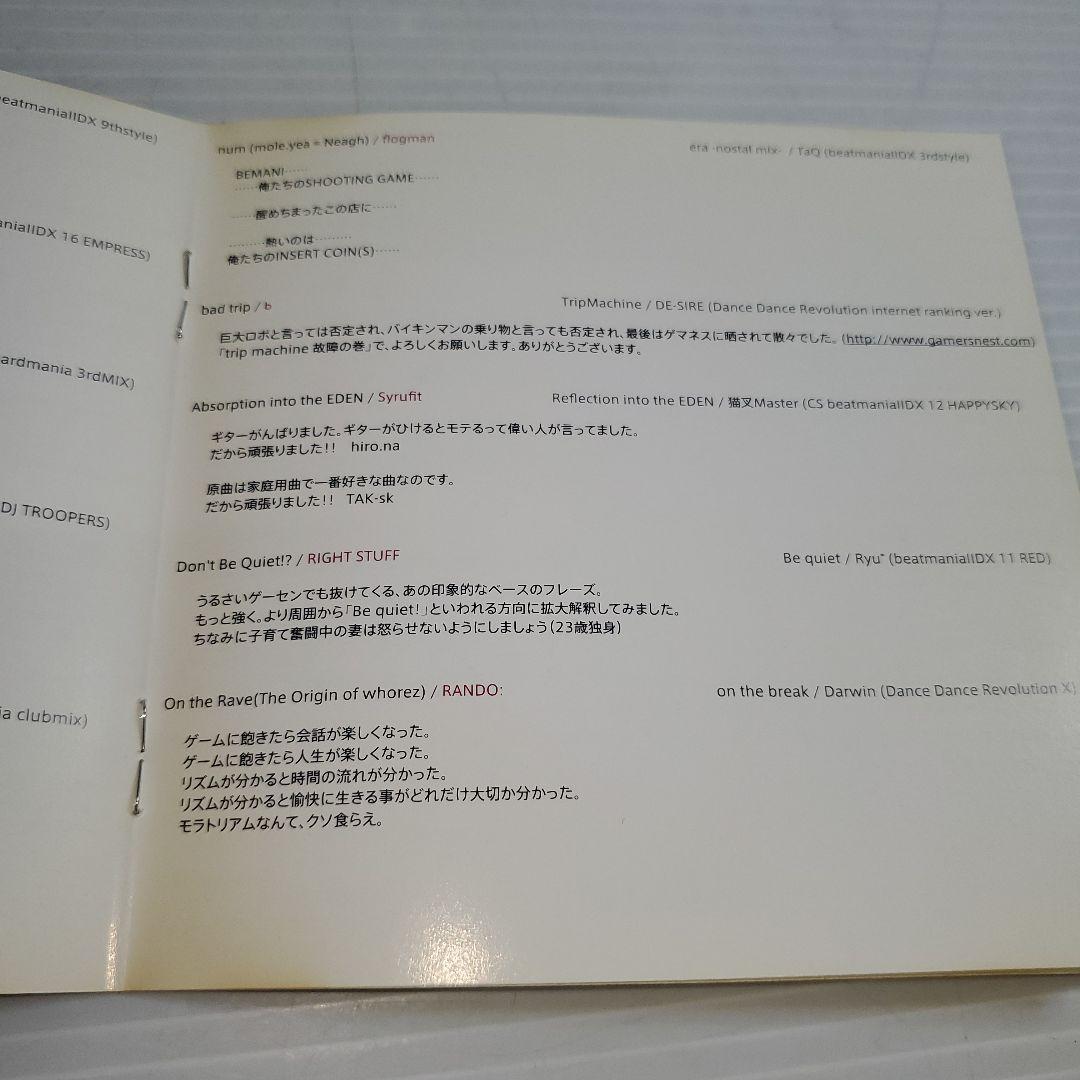 eatmaniaIIDX 9thstyle)
aniaIIDX 16 EMPRESS)
ardmania 3rdMIX)
DJ TROOPERS)
ia clubmix)
num (mole.yea = Neagh) / flogman
era -nostal mix- / TaQ (beatmaniaIIDX 3rdstyle)
BEMANI……
……俺たちのSHOOTING GAME……
……醒めちまったこの店に……
………熱いのは………
俺たちのINSERT COIN(S)……
bad trip / b
TripMachine / DE-SIRE (Dance Dance Revolution internet ranking ver.)
巨大ロボと言っては否定され、バイキンマンの乗り物と言っても否定され、最後はゲマネスに晒されて散々でした。(http://www.gamersnest.com)
「trip machine 故障の巻」で、よろしくお願いします。ありがとうございます。
Absorption into the EDEN / Syrufit
Reflection into the EDEN / 猫叉Master (CS beatmaniaIIDX 12 HAPPYSKY)
ギターがんばりました。ギターがひけるとモテるって偉い人が言ってました。
だから頑張りました!! hiro.na
原曲は家庭用曲で一番好きな曲なのです。
だから頑張りました!! TAK-sk
Don't Be Quiet!? / RIGHT STUFF
Be quiet / Ryu* (beatmaniaIIDX 11 RED)
うるさいゲーセンでも抜けてくる、あの印象的なベースのフレーズ。
もっと強く。より周囲から「Be quiet!」といわれる方向に拡大解釈してみました。
ちなみに子育て奮闘中の妻は怒らせないようにしましょう(23歳独身)
On the Rave(The Origin of whorez) / RANDO:
on the break / Darwin (Dance Dance Revolution X)
ゲームに飽きたら会話が楽しくなった。
ゲームに飽きたら人生が楽しくなった。
リズムが分かると時間の流れが分かった。
リズムが分かると愉快に生きる事がどれだけ大切か分かった。
モラトリアムなんて、クソ食らえ。